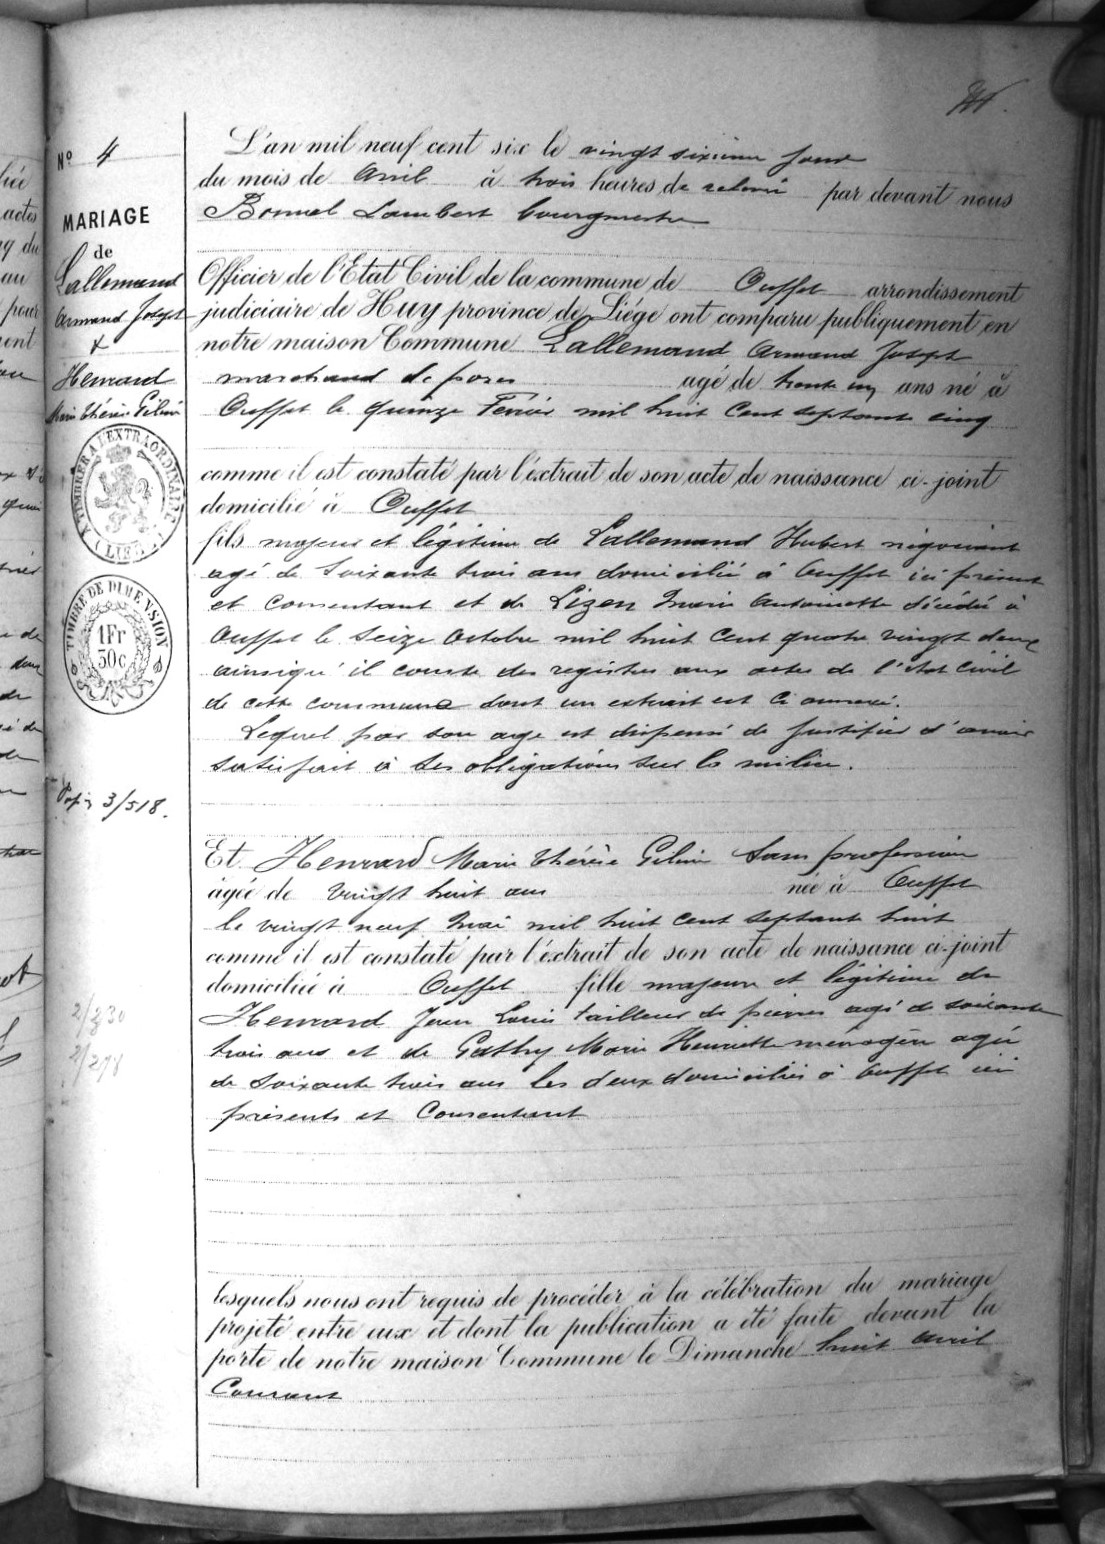 N° 4
MARIAGE
de
Lallemand
Armand Joseph
&
Henrard
Marie Thérèse Géline
A TIMBRER A L'EXTRAORDINAIRE
TIMBRE DE DIMENSION
1Fr
30c
3/518.
2/330
2/278
L'an mil neuf cent six le vingt sixième jour
du mois de Avril à trois heures de relevée par devant nous
Bonnel Lambert bourgmestre
Officier de l'Etat Civil de la commune de Ouffet arrondissement
judiciaire de Huy province de Liége ont comparu publiquement en
notre maison Commune Lallemand Armand Joseph
marchand de porcs agé de trente un ans né à
Ouffet le quinze Fevrier mil huit cent septante cinq
comme il est constaté par l'éxtrait de son acte de naissance ci-joint
domicilié à Ouffet
fils majeur et légitime de Lallemand Hubert négociant
agé de Soixante trois ans domicilié à Ouffet ici présent
et consentant et de Lizen Marie Antoinette décédée à
Ouffet le Seize Octobre mil huit cent quatre vingt deux
ainsiqu'il conste des registres aux actes de l'état civil
de cette commune dont un extrait est ci annexé.
Lequel par son age est dispensé de justifier d'avoir
satisfait à ses obligations sur la milice.
Et Henrard Marie Thérèse Géline Sans profession
âgée de vingt huit ans née à Ouffet
le vingt neuf Mai mil huit cent septante huit
comme il est constaté par l'éxtrait de son acte de naissance ci-joint
domiciliée à Ouffet fille majeure et légitime de
Henrard Jean Louis tailleur de pierres agé de soixante
trois ans et de Gathy Marie Henriette ménagère agée
de Soixante trois ans les deux domiciliés à Ouffet ici
présents et Consentant
lesquels nous ont requis de procéder à la célébration du mariage
projeté entre eux et dont la publication a été faite devant la
porte de notre maison Commune le Dimanche huit avril
Courant